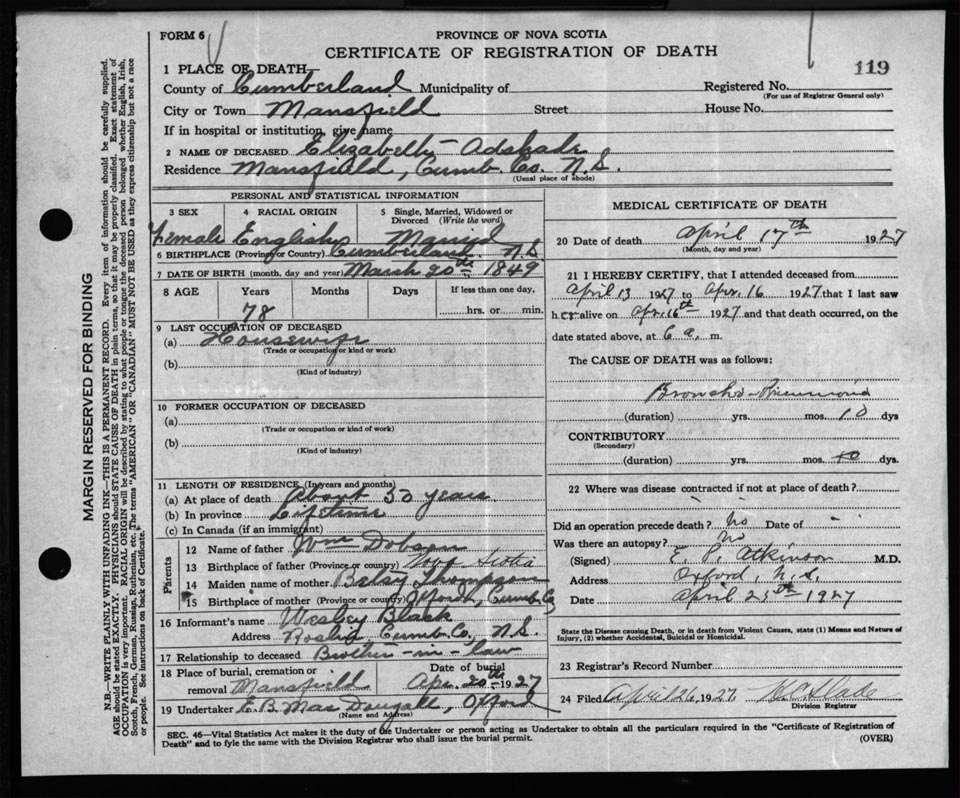 FORM 6
PROVINCE OF NOVA SCOTIA
CERTIFICATE OF REGISTRATION OF DEATH
119
1 PLACE OF DEATH—
County of Cumberland Municipality of Registered No.
(For use of Registrar General only)
City or Town Mansfield Street House No.
If in hospital or institution, give name
2 NAME OF DECEASED Elizabeth Adshade
Residence Mansfield, Cumb. Co. N.S.
(Usual place of abode)
PERSONAL AND STATISTICAL INFORMATION
3 SEX 4 RACIAL ORIGIN 5 Single, Married, Widowed or Divorced (Write the word)
Female English Married
6 BIRTHPLACE (Province or Country) Cumberland N.S
7 DATE OF BIRTH (month, day and year) March 20th 1849
8 AGE Years Months Days If less than one day,
78 hrs. or min.
9 LAST OCCUPATION OF DECEASED
(a) Housewife
(Trade or occupation or kind or work)
(b)
(Kind of industry)
10 FORMER OCCUPATION OF DECEASED
(a)
(Trade or occupation or kind of work)
(b)
(Kind of industry)
11 LENGTH OF RESIDENCE (In years and months)
(a) At place of death About 50 years
(b) In province Lifetime
(c) In Canada (if an immigrant)
Parents
12 Name of father Wm Dobson
13 Birthplace of father (Province or country) Nova Scotia
14 Maiden name of mother Betsy Thompson
15 Birthplace of mother (Province or country) Oxford, Cumb. Co
16 Informant's name Wesley Black
Address Roslin, Cumb. Co. N.S.
17 Relationship to deceased Brother-in-law
18 Place of burial, cremation or removal Mansfield Date of burial Apr. 20th 1927
19 Undertaker E.B. MacDougall, Oxford
(Name and Address)
MEDICAL CERTIFICATE OF DEATH
20 Date of death April 17th 1927
(Month, day and year)
21 I HEREBY CERTIFY, that I attended deceased from
April 13 1927 to Apr. 16 1927 that I last saw
her alive on Apr. 16th 1927 and that death occurred, on the
date stated above, at 6 a. m.
The CAUSE OF DEATH was as follows:
Broncho-Pneumonia
(duration) yrs. mos. 10 dys
CONTRIBUTORY
(Secondary)
(duration) yrs. mos. 10 dys.
22 Where was disease contracted if not at place of death?
Did an operation precede death? No Date of -
Was there an autopsy? No
(Signed) E. P. Atkinson M.D.
Address Oxford, N.S.
Date April 25th 1927
State the Disease causing Death, or in death from Violent Causes, state (1) Means and Nature of
Injury, (2) whether Accidental, Suicidal or Homicidal.
23 Registrar's Record Number
24 Filed April 26, 1927 Slade
Division Registrar
SEC. 46—Vital Statistics Act makes it the duty of the Undertaker or person acting as Undertaker to obtain all the particulars required in the "Certificate of Registration of
Death" and to fyle the same with the Division Registrar who shall issue the burial permit. (OVER)
MARGIN RESERVED FOR BINDING
N.B.—WRITE PLAINLY WITH UNFADING INK—THIS IS A PERMANENT RECORD. Every item of information should be carefully supplied.
AGE should be stated EXACTLY. PHYSICIANS should STATE CAUSE OF DEATH in plain terms, so that it may be properly classified. Exact statement of
OCCUPATION is very important. RACIAL ORIGIN will be described by stating to what people or tongue the deceased person belonged whether English, Irish,
Scotch, French, German, Russian, Ruthenian, etc. The terms "AMERICAN" OR "CANADIAN" MUST NOT BE USED as they express citizenship but not a race
or people. See instructions on back of Certificate.